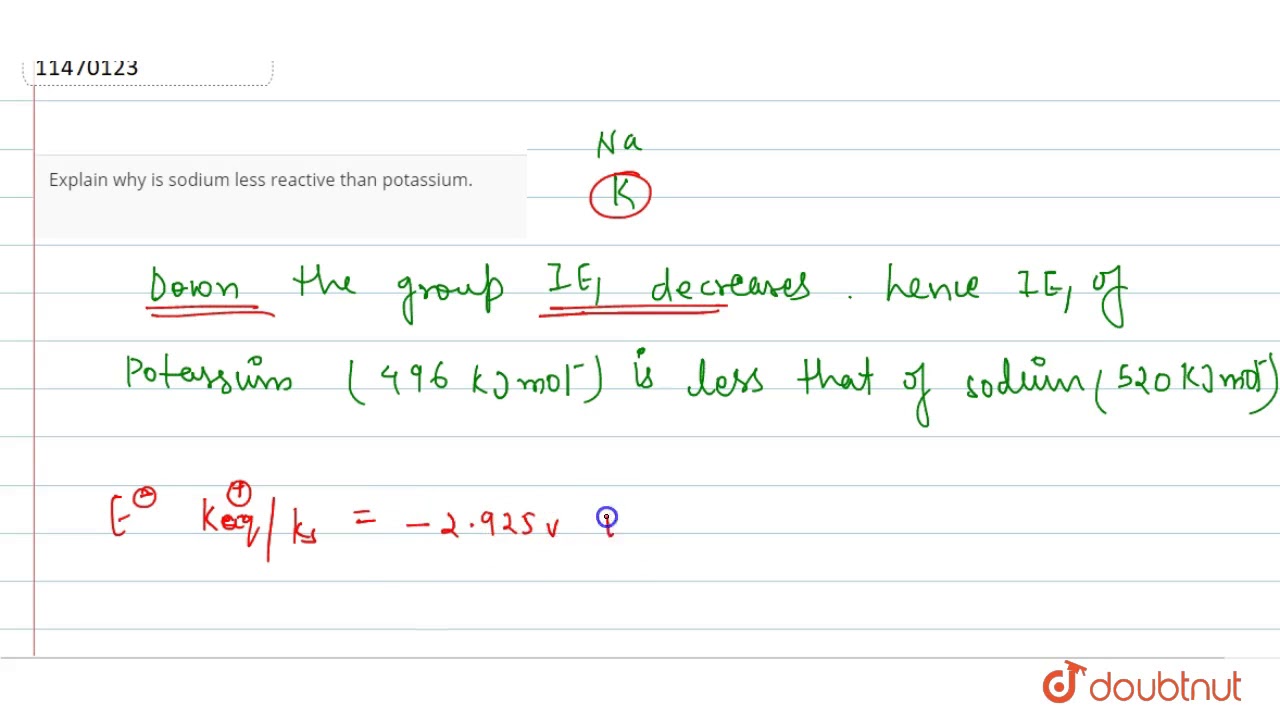 11470123
Na
Explain why is sodium less reactive than potassium.
K
Down the group IE₁ decreases. hence IE₁ of
Potassium (496 KJ mol⁻) is less that of sodium (520 KJ mol⁻)
E⊖ K⊕aq/Ks = -2.925 v
doubtnut